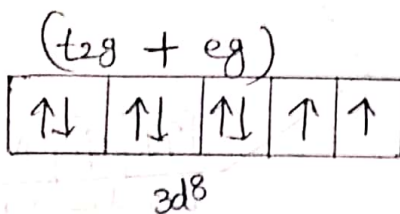 (t2g + eg)
↑↓ ↑↓ ↑↓ ↑ ↑
3d⁸